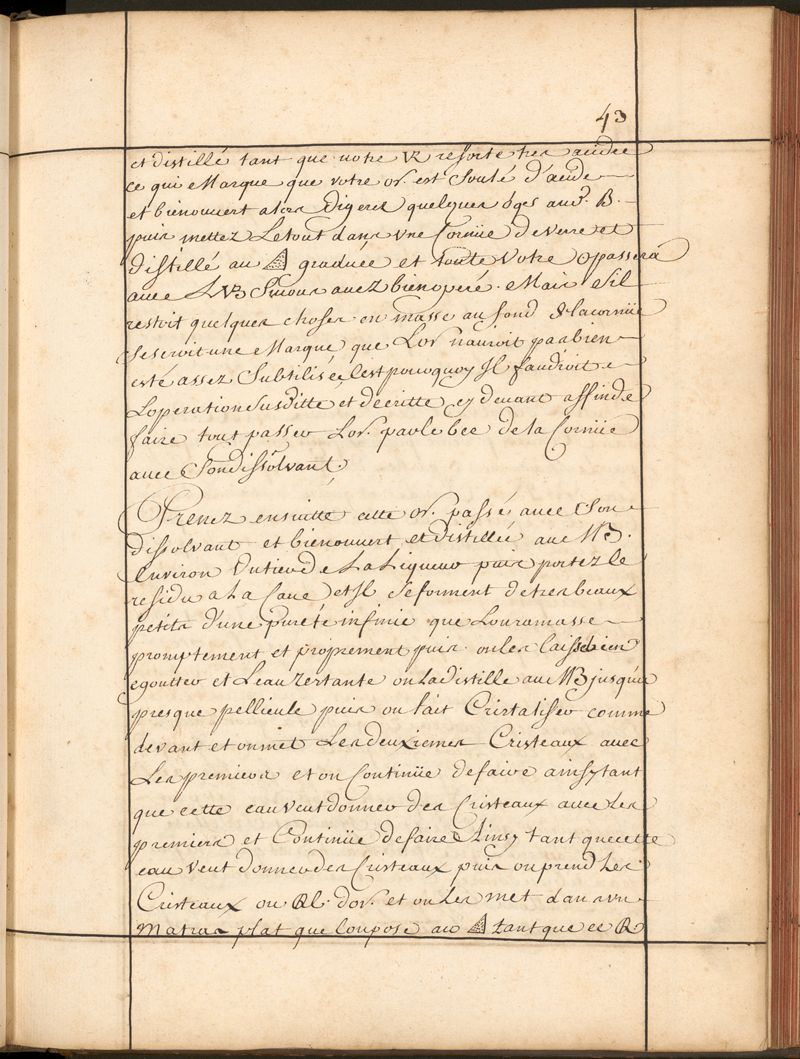 43
et distillé tant que notre VR resorte tres acidée
ce qui Marque que votre or. est Soulé d'acide
et bien ouvert alors digerez quelques 6 jrs au B.
puis mettez Letout dans vne Cornüe deverre et
distillé au graduée et toute Votre passera
auec L Sinous auez bien operé. Mais Sil
restoit quelques choses en masse au fond de lacornüe
Seseroit une Marque que Lor nauroit pas bien
esté assez Subtilisée Cest pourquoy Jl faudroit
Loperation Susditte et décritte cy devant affinde
faire tout passer Lor. par le bec dela Cornüe
auec Son dissolvant,
Prenez ensuitte cette or. passé auec Son
dissolvant et bien ouvert et distillée au MB.
Environ Dutierde La Liqueur puis portez le
residu a La Caue et Jl Seforment detres beaux
petits d'une pureté infinie que Louramasse
promptement et proprement puis on les laisse bien
egoutter et Leau restante on Ladistille au MB jusqua
presque pellicule puis on fait Cristaliser comme
devant et onmet Lesdeuxiemes Cristeaux auec
Les premiers et on Continüe defaire ainsy tant
que cette eau veut donner des Cristeaux avec Les
premiers et Continüe defaire Ainsy tant quecette
eau Veut donner des Cristeaux puis on prend Les
Cristeaux ou dor. et on Les met dans vn
Matras plat que lonpose au tant que ce